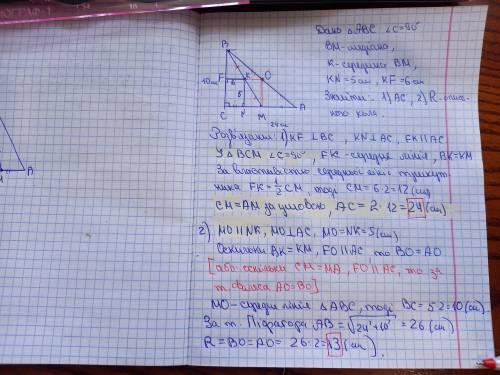 Дано △ABC ∠C=90°
BM-медіана,
K-середина BM,
KN=5см, KF=6см
Знайти: 1) AC, 2) R-описа-
ного кола.
B
F
K
O
10см
6
5
C
N
M
A
24см
A
Розв'язання: 1) KF⊥BC, KN⊥AC, FK∥AC
У △BCM ∠C=90°, FK-середня лінія, BK=KM
За властивістю середньої лінії трикут
ника FK=½CM, тоді CM=6·2=12(см)
CM=AM за умовою, AC=2·12=24(см)
2) MO∥NK, MO⊥AC, MO=NK=5(см)
Оскільки BK=KM, FO∥AC, то BO=AO
[або оскільки CM=MA, FO∥AC, то за
т. Фалеса AO=BO]
MO-середня лінія △ABC, тоді BC=5·2=10(см)
За т. Піфагора AB=√24²+10²=26(см)
R=BO=AO=26:2=13(см).